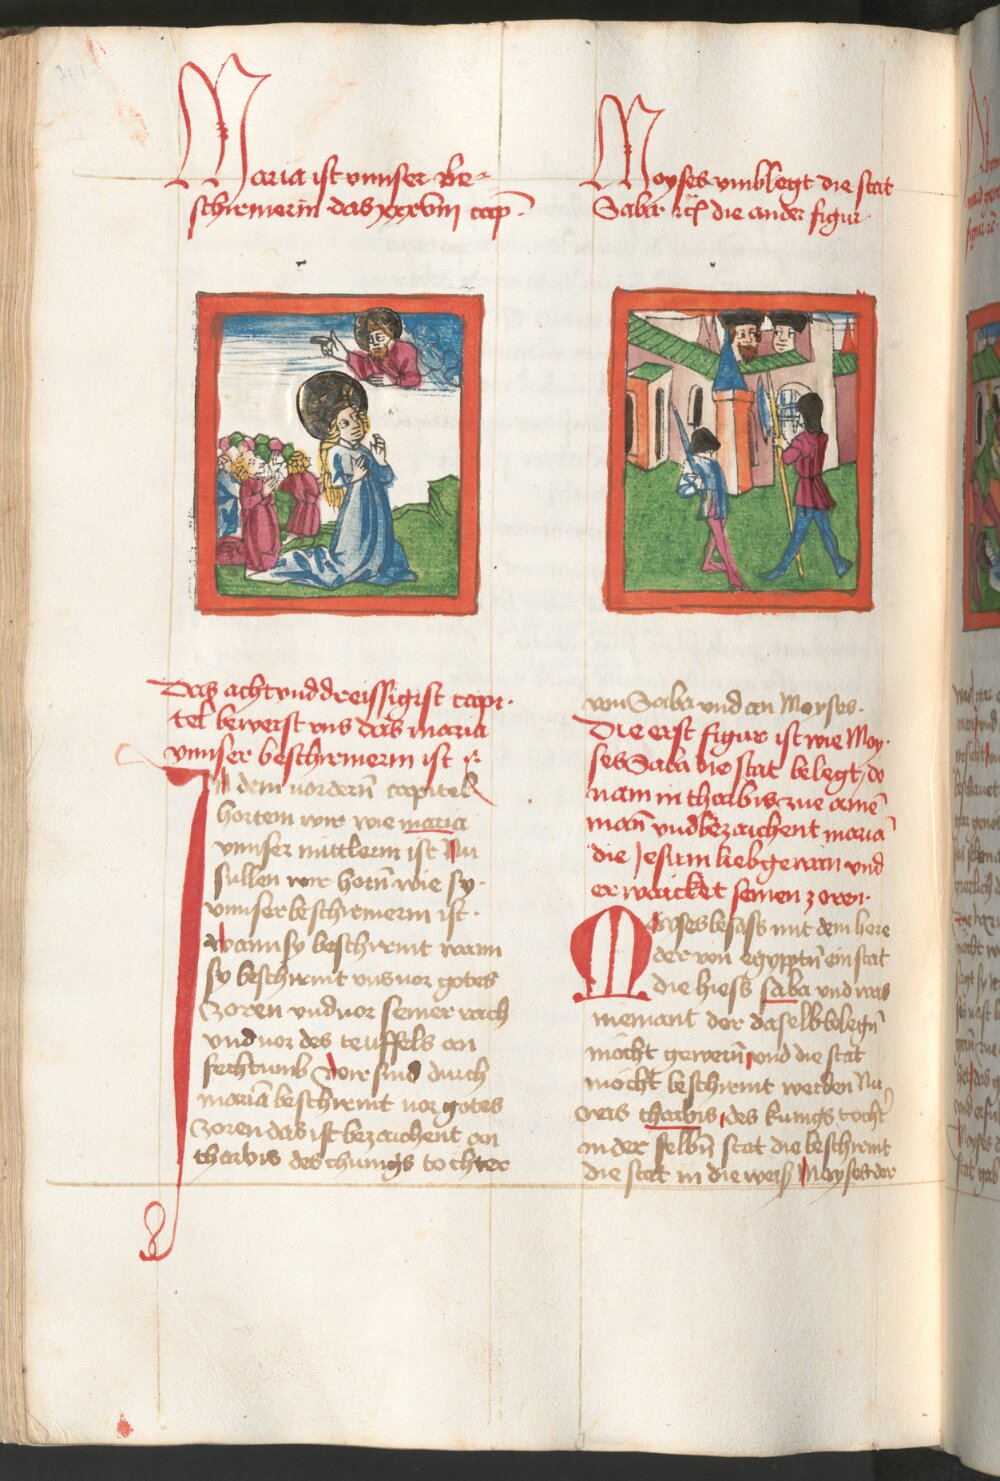 Maria ist vnnser Be-
schirmerin das xxxviij cap.
Das acht vnd dreissigist capi-
tel bewerst vns das maria
vnnser beschirmerin ist
In dem vordern̄ capitel
hortem wir wie maria
vnnser mittlerin ist Nu
sullen wir horn̄ wie sy
vnnser beschirmerin ist.
wann sy beschirmt wann
sy beschirmt vns vor gotes
zoren vnd vor seiner rach
vnd vor des teuffels an
fechtumb wir sind durch
mariā beschirmt vor gotes
zoren das ist bezaichent an
tharbis des chunigs tochter
Moyses vmblegt die stat
Saba die ander figur
von Saba vnd an Moyses.
Die erst figur ist wie Moy-
ses Saba die stat belegt, do
nam in tharbis zue ainē
man̄ vnd bezaichent mariā
die Jesum liebgewan vnd
erwaicket seinen zoren.
Moyses besass mit dem here
der von egyptn̄ ein stat
die hiess saba vnd was
niemant der daselb belegn̄
mocht gewern̄ vnd die stat
mocht beschirmt werden Nu
was tharbis des kunigs tocht̄
in der selbn̄ stat die beschirmt
die stat in die weiss Moyses der